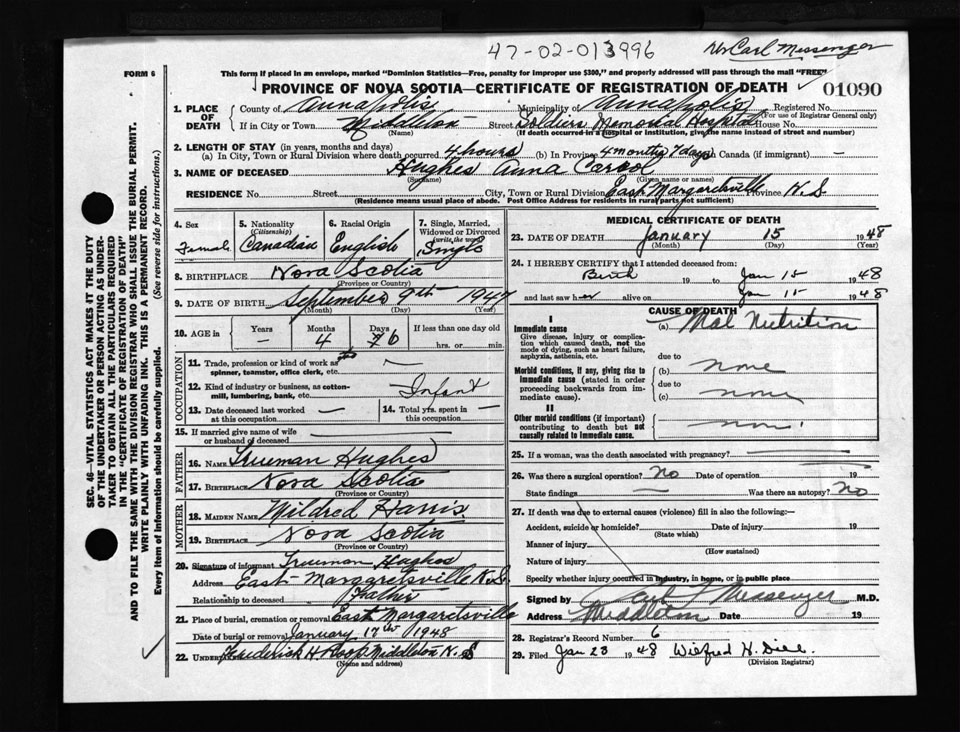 47-02-013996
Dr Carl Messenger
FORM 6
This form if placed in an envelope, marked "Dominion Statistics—Free, penalty for improper use $300," and properly addressed will pass through the mail "FREE"
PROVINCE OF NOVA SCOTIA—CERTIFICATE OF REGISTRATION OF DEATH
01090
1. PLACE OF DEATH
County of Annapolis Municipality of Annapolis Registered No.
(For use of Registrar General only)
If in City or Town Middleton Street Soldiers Memorial Hospital House No.
(Name) (If death occurred in a hospital or institution, give the name instead of street and number)
2. LENGTH OF STAY (in years, months and days)
(a) In City, Town or Rural Division where death occurred 4 hours (b) In Province 4 months 7 days Canada (if immigrant) —
3. NAME OF DECEASED Hughes Anna Carol
(Surname) (Given name or names)
RESIDENCE No. Street City, Town or Rural Division East Margaretsville Province N.S
(Residence means usual place of abode. Post Office Address for residents in rural parts not sufficient)
4. Sex Female
5. Nationality (Citizenship) Canadian
6. Racial Origin English
7. Single, Married, Widowed or Divorced (write the word) Single
8. BIRTHPLACE Nova Scotia
(Province or Country)
9. DATE OF BIRTH September 9th 1947
(Month) (Day) (Year)
10. AGE in Years — Months 4 Days 6 If less than one day old hrs. or min.
OCCUPATION
11. Trade, profession or kind of work as spinner, teamster, office clerk, etc.
12. Kind of industry or business, as cotton-mill, lumbering, bank, etc. Infant
13. Date deceased last worked at this occupation —
14. Total yrs. spent in this occupation. —
15. If married give name of wife or husband of deceased —
FATHER
16. NAME Trueman Hughes
17. BIRTHPLACE Nova Scotia
(Province or Country)
MOTHER
18. MAIDEN NAME Mildred Harris
19. BIRTHPLACE Nova Scotia
(Province or Country)
20. Signature of informant Trueman Hughes
Address East Margaretsville N.S.
Relationship to deceased Father
21. Place of burial, cremation or removal East Margaretsville
Date of burial or removal January 17th 1948
22. UNDERTAKER Frederick H. Roop Middleton N.S
(Name and address)
MEDICAL CERTIFICATE OF DEATH
23. DATE OF DEATH January 15 1948
(Month) (Day) (Year)
24. I HEREBY CERTIFY that I attended deceased from:
Birth 19 to Jan 15 1948
and last saw her alive on Jan 15 1948
CAUSE OF DEATH
I
Immediate cause (a) Mal Nutrition
Give disease, injury or complication which caused death, not the mode of dying, such as heart failure, asphyxia, asthenia, etc.
due to
Morbid conditions, if any, giving rise to immediate cause (stated in order proceeding backwards from immediate).
(b) none
due to
(c) none
II
Other morbid conditions (if important) contributing to death but not causally related to immediate cause. none
25. If a woman, was the death associated with pregnancy?
26. Was there a surgical operation? No Date of operation 19
State findings — Was there an autopsy? No
27. If death was due to external causes (violence) fill in also the following:—
Accident, suicide or homicide? Date of injury 19
(State which)
Manner of injury
(How sustained)
Nature of injury
Specify whether injury occurred in industry, in home, or in public place
Signed by Carl Messenger M.D.
Address Middleton Date 19
28. Registrar's Record Number 6
29. Filed Jan 23 1948 Wilfred H. Dill.
(Division Registrar)
SEC. 46—VITAL STATISTICS ACT MAKES IT THE DUTY
OF THE UNDERTAKER OR PERSON ACTING AS UNDER-
TAKER TO OBTAIN ALL THE PARTICULARS REQUIRED
IN THE "CERTIFICATE OF REGISTRATION OF DEATH"
AND TO FILE THE SAME WITH THE DIVISION REGISTRAR WHO SHALL ISSUE THE BURIAL PERMIT.
WRITE PLAINLY WITH UNFADING INK. THIS IS A PERMANENT RECORD.
Every item of information should be carefully supplied. (See reverse side for instructions.)